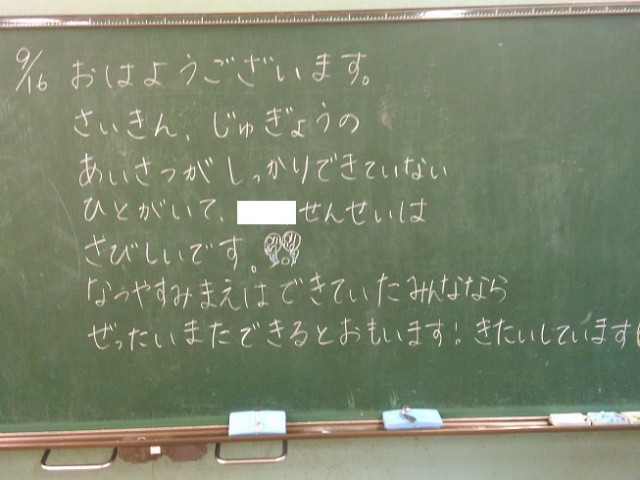 9/16 おはようございます。
さいきん、じゅぎょうの
あいさつがしっかりできていない
ひとがいて、せんせいは
さびしいです。
なつやすみまえはできていたみんななら
ぜったいまたできるとおもいます！きたいしています